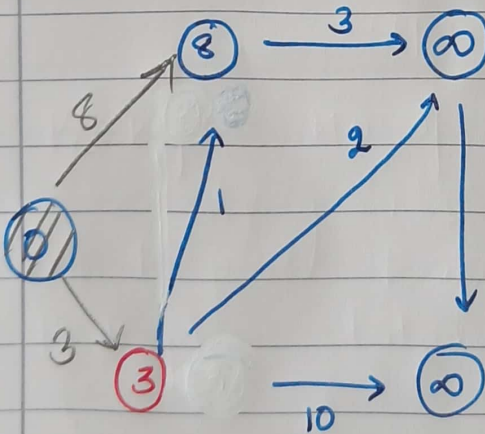 8 3 ∞
8 2
1
0
3
3 ∞
10